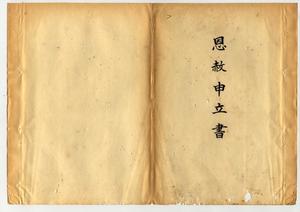 恩赦申立書